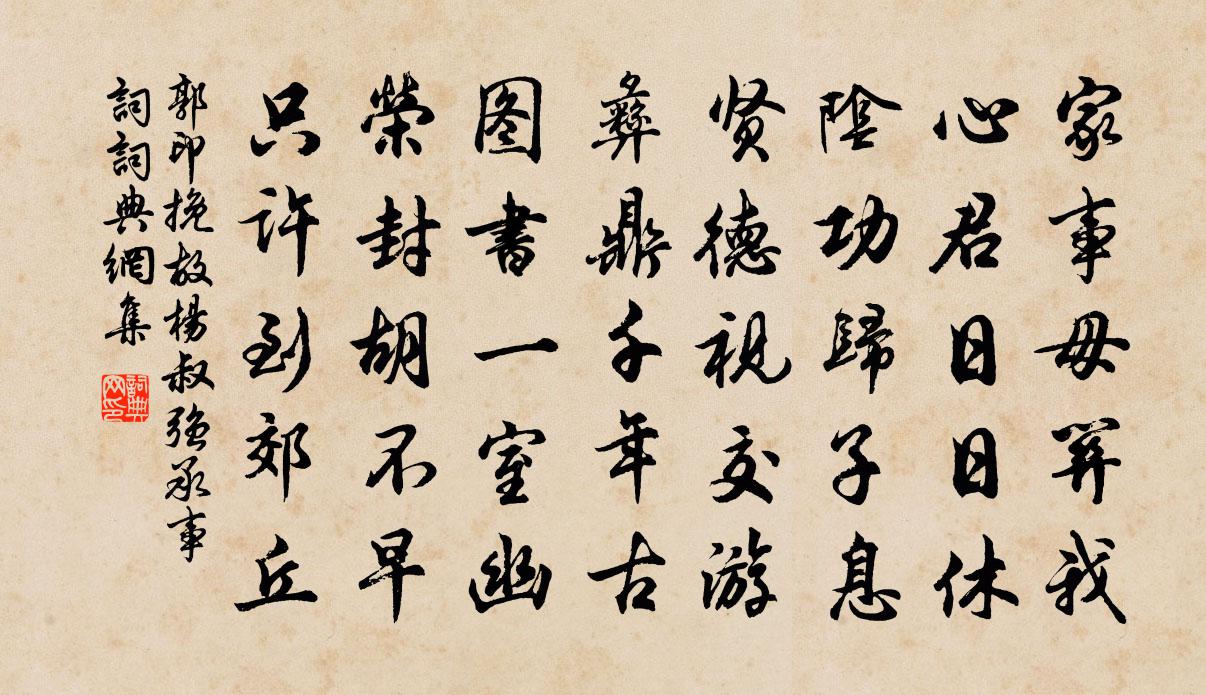 家事毋关我
心君日日休
陰功歸子息
贤德視交游
彝鼎千年古
图書一室幽
榮封胡不早
只许到郊丘
郭印挽故楊叔强承事
詞詞典網集
詞典
网印